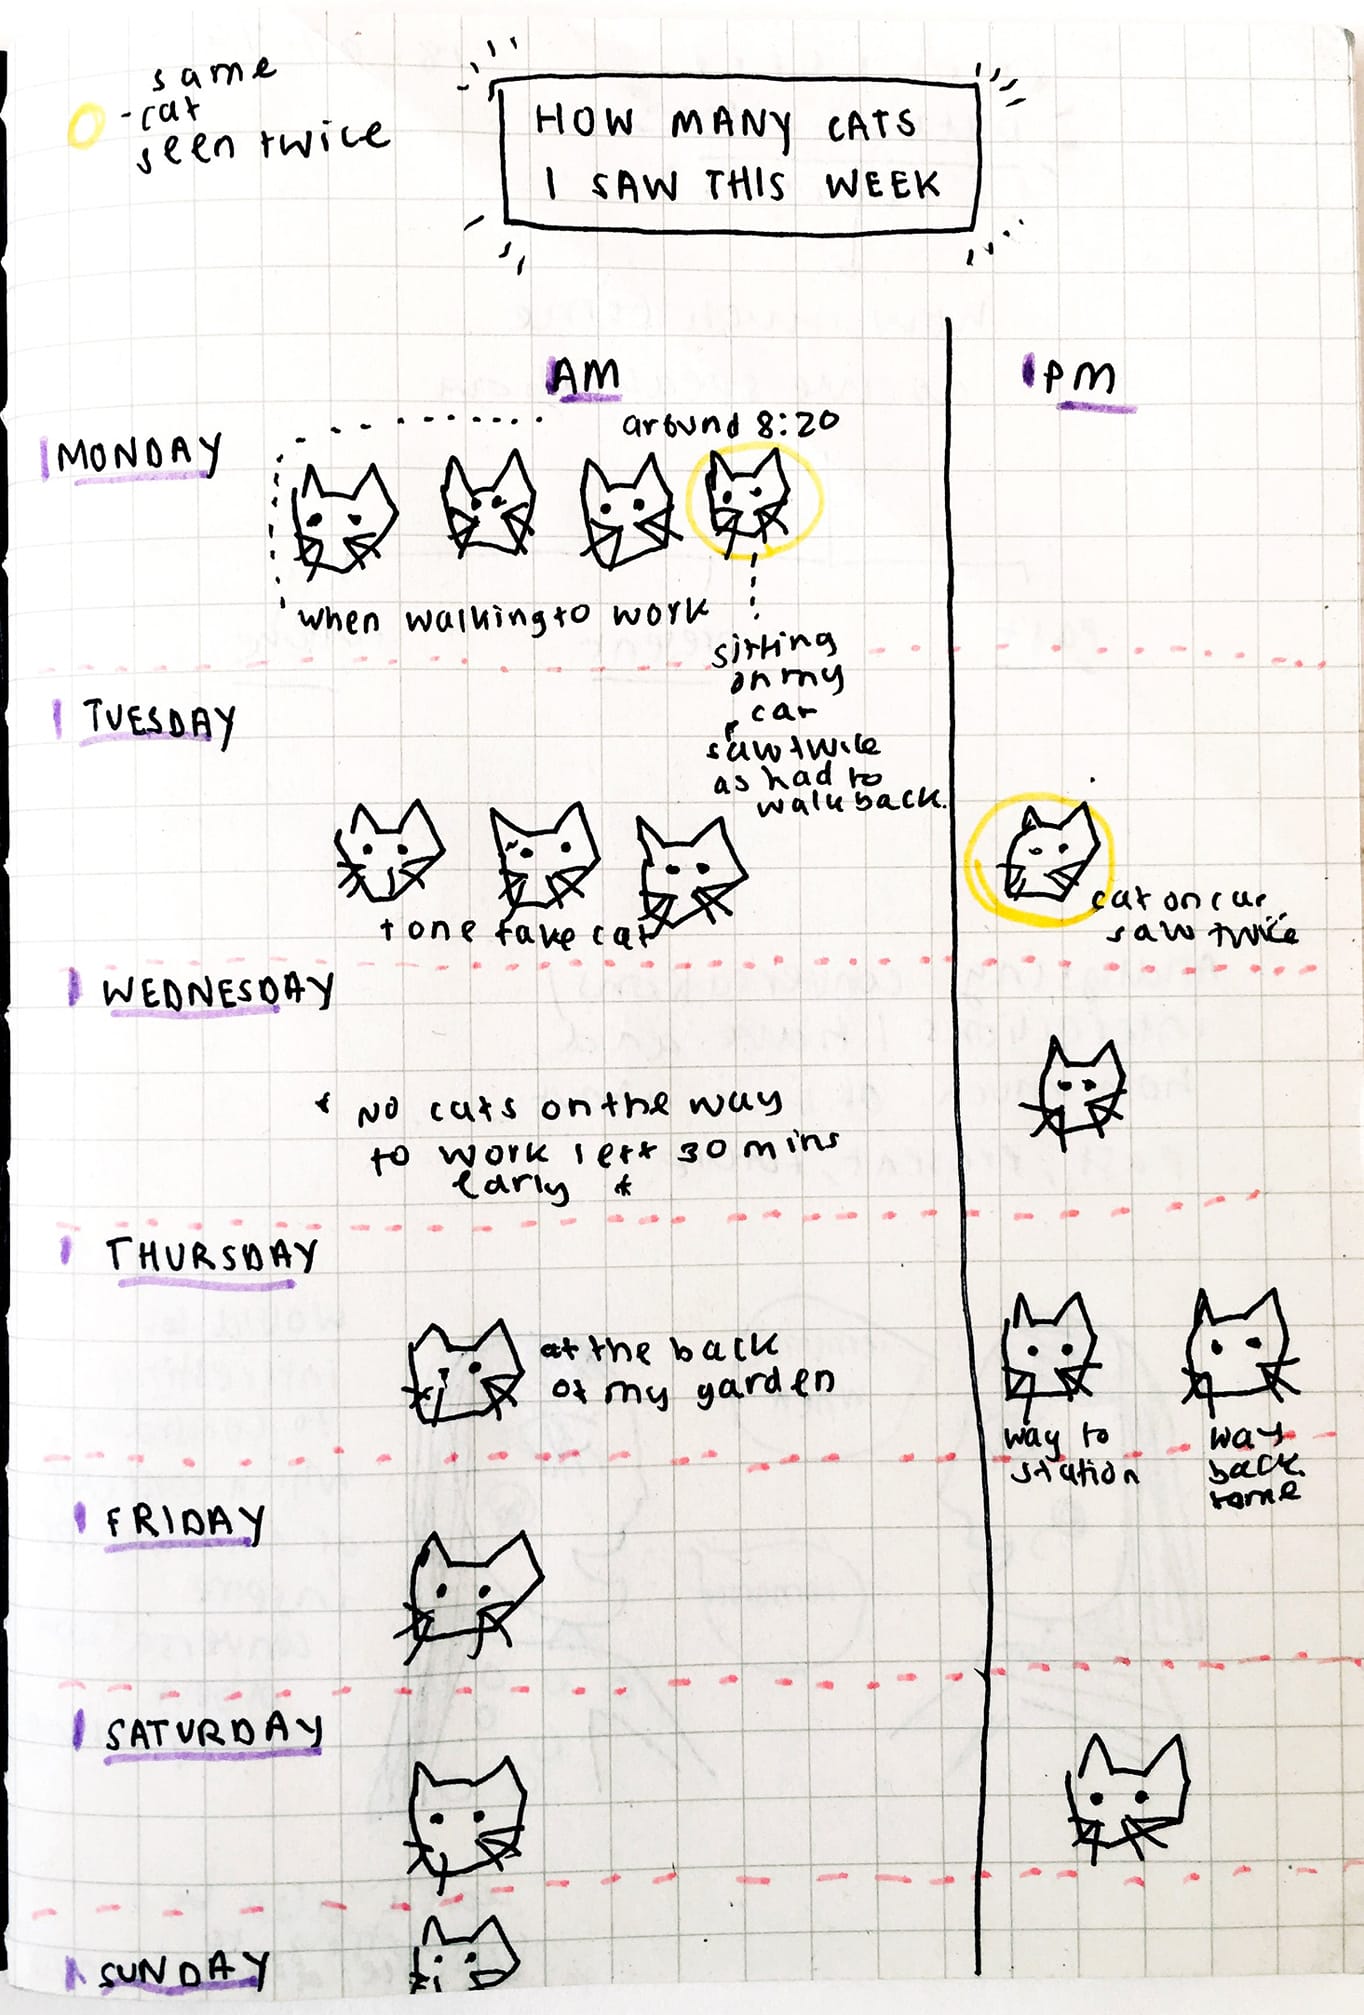 same
- cat
seen twice
HOW MANY CATS
I SAW THIS WEEK
AM
PM
MONDAY
around 8:20
when walking to work
sitting
on my
car
saw twice
as had to
walk back.
TUESDAY
+ one fake cat
cat on car
saw twice
WEDNESDAY
* NO cats on the way
to work left 30 mins
early *
THURSDAY
at the back
of my garden
way to
station
way
back
home
FRIDAY
SATURDAY
SUNDAY